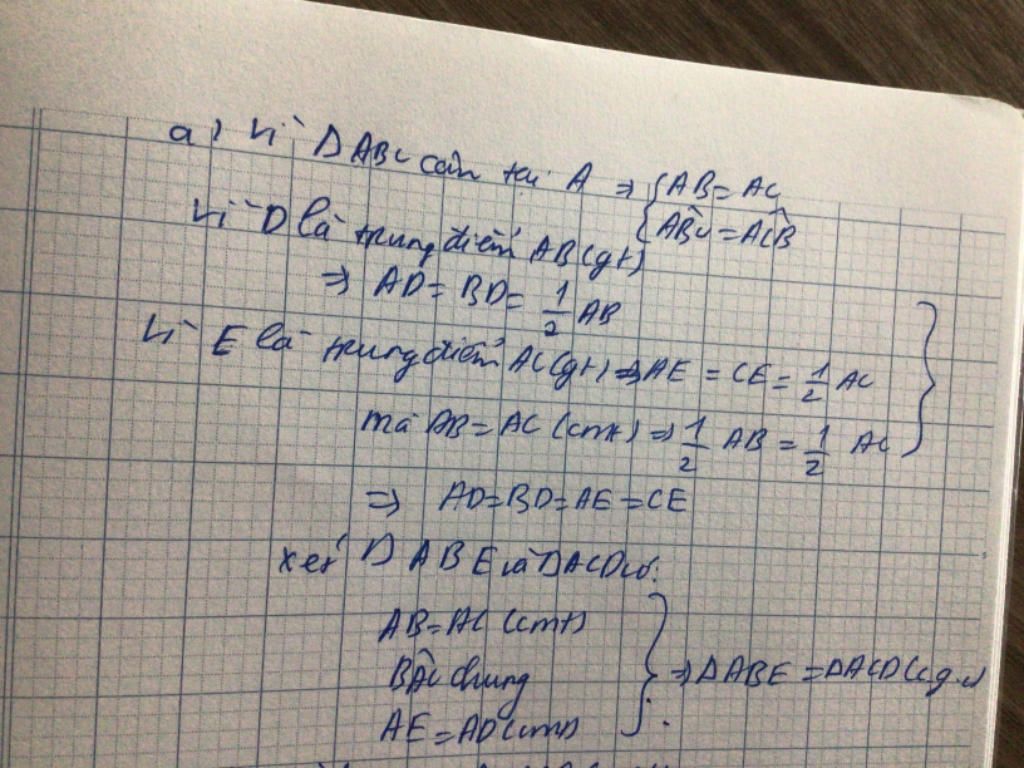 a) Vì ΔABC cân tại A ⇒ { AB = AC
ABC = ACB
Vì D là trung điểm AB (gt)
⇒ AD = BD = 1/2 AB
Vì E là trung điểm AC (gt) ⇒ AE = CE = 1/2 AC
mà AB = AC (cmt) ⇒ 1/2 AB = 1/2 AC
⇒ AD = BD = AE = CE
Xét Δ ABE và ΔACD có:
AB = AC (cmt)
BAC chung
AE = AD (cmt)
} ⇒ ΔABE = ΔACD (c.g.c)